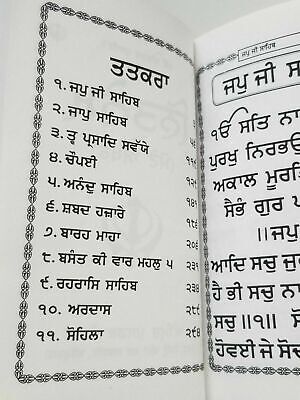 ਤਤਕਰਾ
੧. ਜਪੁ ਜੀ ਸਾਹਿਬ
੨. ਜਾਪੁ ਸਾਹਿਬ
੩. ਤ੍ਵ ਪ੍ਰਸਾਦਿ ਸਵੱਯੇ
੪. ਚੌਪਈ
੫. ਅਨੰਦੁ ਸਾਹਿਬ
੬. ਸ਼ਬਦ ਹਜ਼ਾਰੇ
੭. ਬਾਰਹ ਮਾਹਾ
੮. ਬਸੰਤ ਕੀ ਵਾਰ ਮਹਲੁ ੫
੯. ਰਹਰਾਸਿ ਸਾਹਿਬ
੧੦. ਅਰਦਾਸ
੧੧. ਸੋਹਿਲਾ
ਜਪੁ ਜੀ ਸਾਹਿਬ
ਜਪੁ ਜੀ
ੴ ਸਤਿ
ਪੁਰਖੁ ਨਿਰਭਉ
ਅਕਾਲ ਮੂਰਤਿ
ਸੈਭੰ ਗੁਰ
॥ਜਪੁ
ਆਦਿ ਸਚੁ
ਹੈ ਭੀ ਸਚੁ
ਸਚੁ ॥੧॥
ਹੋਵਈ ਜੇ